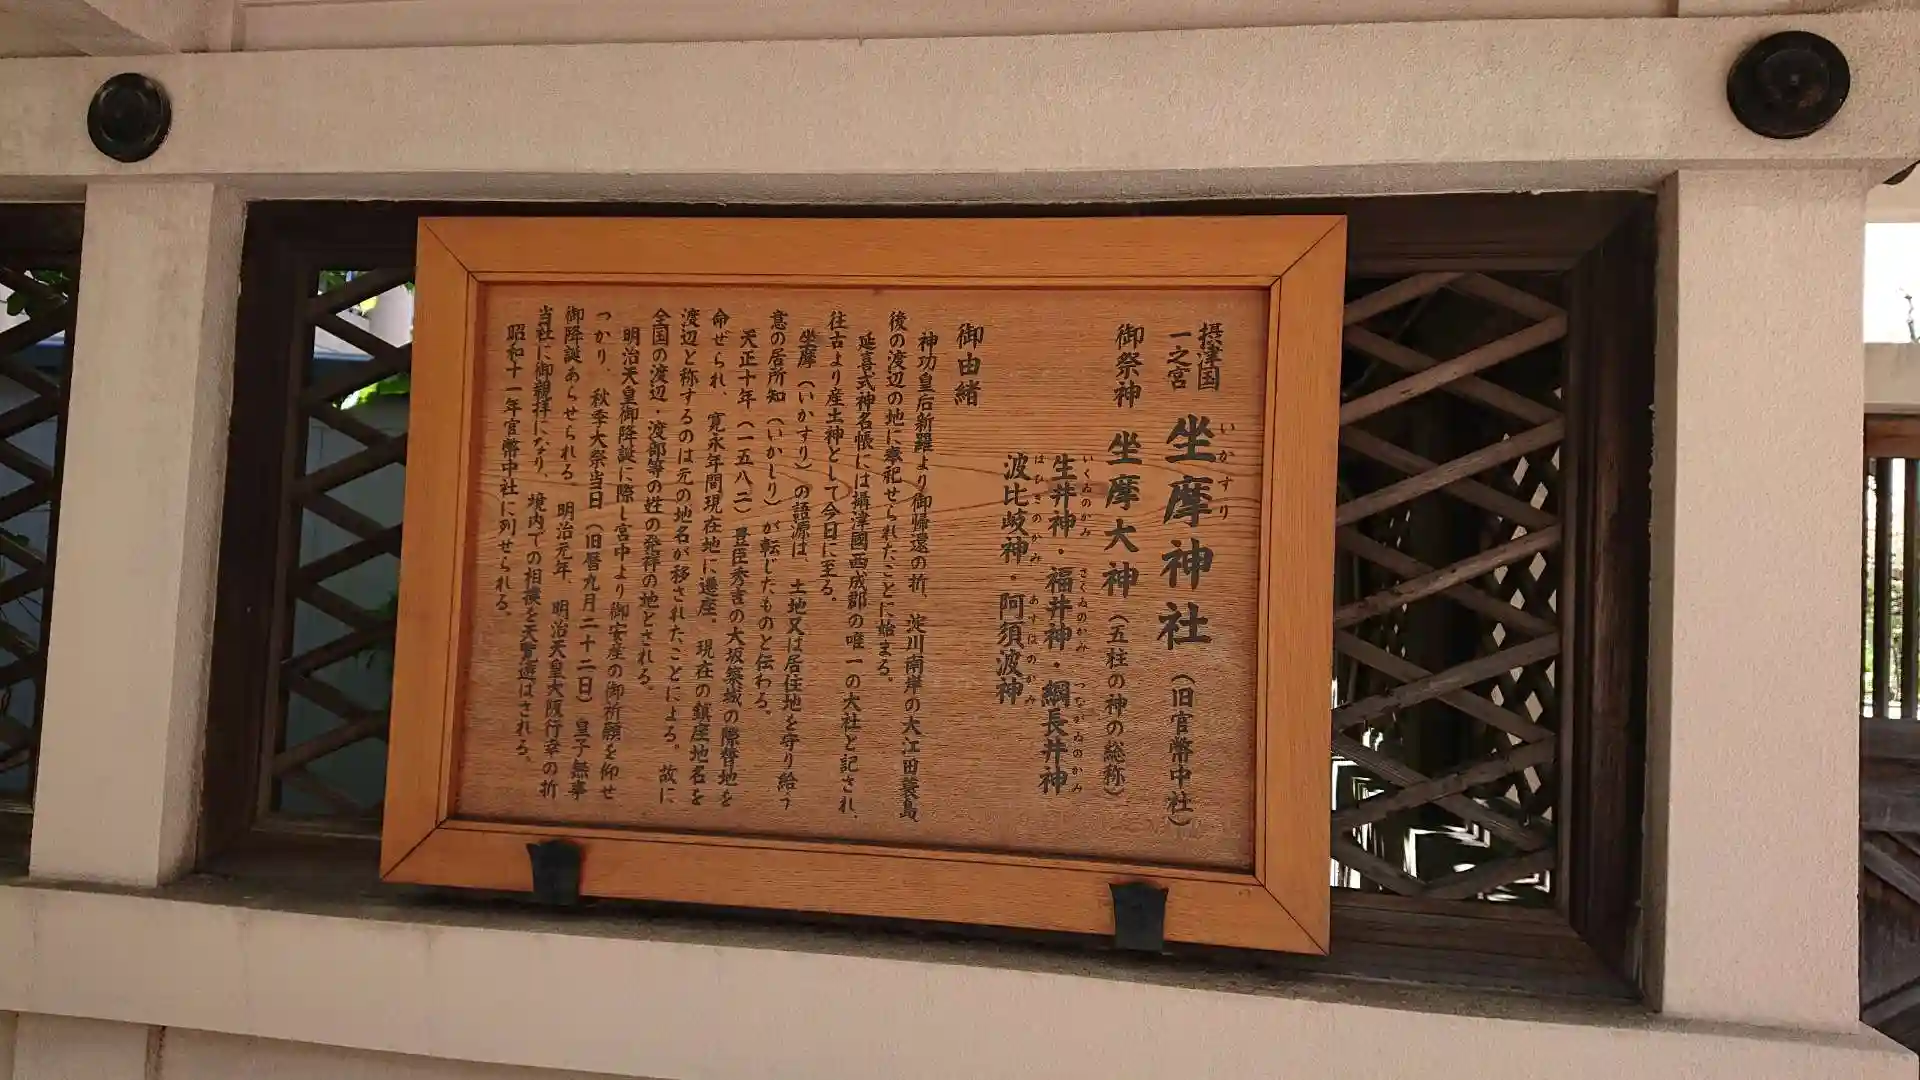 摂津国
一之宮
坐摩神社（旧官幣中社）
いかすり
御祭神 坐摩大神（五柱の神の総称）
生井神・福井神・綱長井神
いくゐのかみ さくゐのかみ つながゐのかみ
波比岐神・阿須波神
はひきのかみ あすはのかみ
御由緒
神功皇后新羅より御帰還の折、淀川南岸の大江田蓑島、
後の渡辺の地に奉祀せられたことに始まる。
延喜式神名帳には攝津國西成郡の唯一の大社と記され、
往古より産土神として今日に至る。
坐摩（いかすり）の語源は、土地又は居住地を守り給う
意の居所知（いかしり）が転じたものと伝わる。
天正十年（一五八二）豊臣秀吉の大坂築城の際替地を
命ぜられ、寛永年間現在地に遷座。現在の鎮座地名を
渡辺と称するのは元の地名が移されたことによる。故に
全国の渡辺・渡部等の姓の発祥の地とされる。
明治天皇御降誕に際し宮中より御安産の御祈願を仰せ
つかり、秋季大祭当日（旧暦九月二十二日）皇子無事
御降誕あらせられる 明治元年、明治天皇大阪行幸の折
当社に御親拝になり、境内での相撲を天覧遊ばされる。
昭和十一年官幣中社に列せられる。